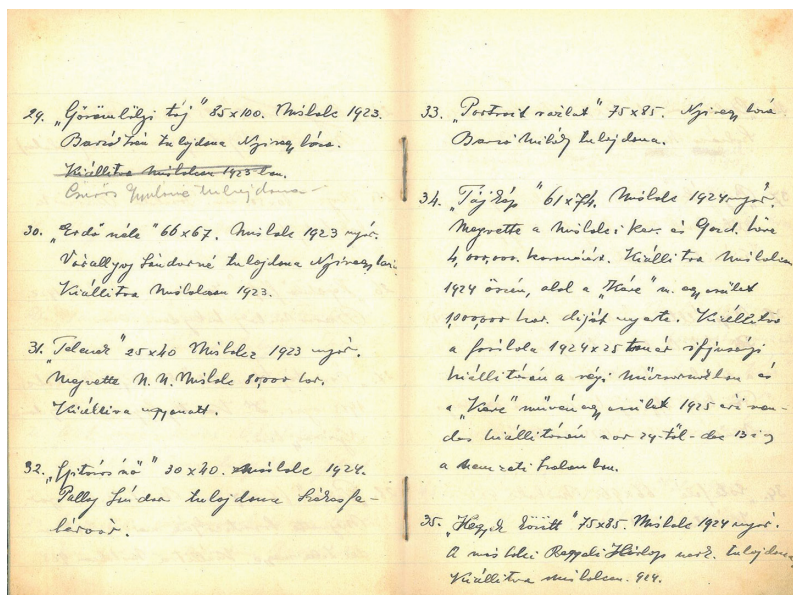 29. „Görömbölyi táj" 85x100. Miskolc 1923.
Barzó Iván tulajdona Nyiregyháza.
Kiállitva Miskolcon 1923 ban.
Gyuláné tulajdona
30. „Erdő széle" 66x67. Miskolc 1923 nyár.
Sándorné tulajdona Nyiregyháza
Kiállitva Miskolcon 1923.
31. „Telenek" 25x40 Miskolc 1923 nyár.
Megvette N. N. Miskolc 80,000 kor.
Kiállitva ugyanott.
32. 30x40. Miskolc 1924.
Pallag Sándor tulajdona Székesfe-
hérvár.
33. „Portrait vázlat" 75x85. Nyiregyháza
Barzó Mihály tulajdona.
34. „Tájkép" 61x74. Miskolc 1924 nyár.
Megvette a Miskolci ker. és Gazd. köre
4,000,000 koronáért. Kiállitva Miskolcon
1924 őszén, ahol a „Káve" m. egyesület
1,000,000 kor. diját nyerte. Kiállitva
a főiskola 1924x25 tanév ifjusági
kiállitásán a régi műcsarnokban és
a „Káve" művész egyesület 1925 évi ren-
des kiállitásán nov 29-től - dec 13 ig
a Nemzeti Szalonban.
35. „Hegyek között" 75x85. Miskolc 1924 nyár.
A miskolci Reggeli Hirlap tulajdona
Kiállitva Miskolcon. 924.